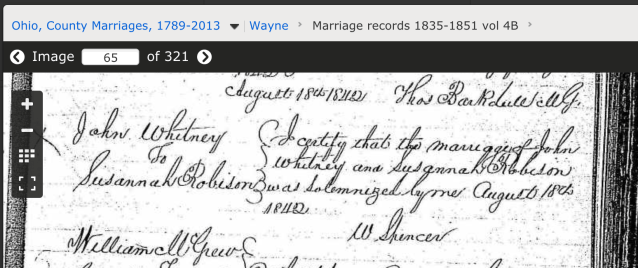 Ohio, County Marriages, 1789-2013 Wayne › Marriage records 1835-1851 vol 4B ›
Image 65 of 321
August 18th 1842 Thos Barkdull M G.
John Whitney I certify that the marriage of John
To Whitney and Susannah Robison
Susannah Robison was solemnized by me August 18th
1842
W Spencer
William McGrew